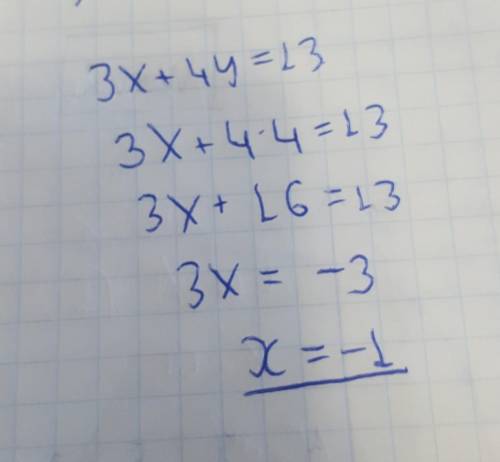 3x+4y=13
3x+4·4=13
3x+16=13
3x = -3
x = -1